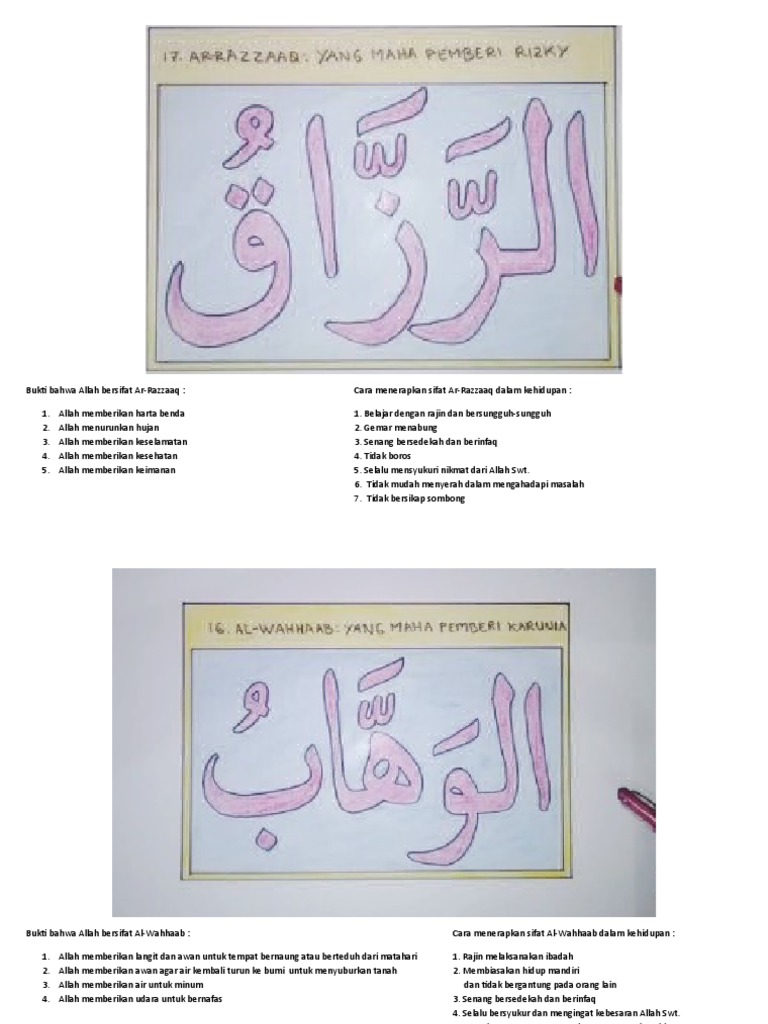 17. AR-RAZZAAQ : YANG MAHA PEMBERI RIZKY
الرَّزَّاقُ
Bukti bahwa Allah bersifat Ar-Razzaaq :
1. Allah memberikan harta benda
2. Allah menurunkan hujan
3. Allah memberikan keselamatan
4. Allah memberikan kesehatan
5. Allah memberikan keimanan
Cara menerapkan sifat Ar-Razzaaq dalam kehidupan :
1. Belajar dengan rajin dan bersungguh-sungguh
2. Gemar menabung
3. Senang bersedekah dan berinfaq
4. Tidak boros
5. Selalu mensyukuri nikmat dari Allah Swt.
6. Tidak mudah menyerah dalam mengahadapi masalah
7. Tidak bersikap sombong
16. AL-WAHHAAB : YANG MAHA PEMBERI KARUNIA
الوَهَّابُ
Bukti bahwa Allah bersifat Al-Wahhaab :
1. Allah memberikan langit dan awan untuk tempat bernaung atau berteduh dari matahari
2. Allah memberikan awan agar air kembali turun ke bumi untuk menyuburkan tanah
3. Allah memberikan air untuk minum
4. Allah memberikan udara untuk bernafas
Cara menerapkan sifat Al-Wahhaab dalam kehidupan :
1. Rajin melaksanakan ibadah
2. Membiasakan hidup mandiri
dan tidak bergantung pada orang lain
3. Senang bersedekah dan berinfaq
4. Selalu bersyukur dan mengingat kebesaran Allah Swt.